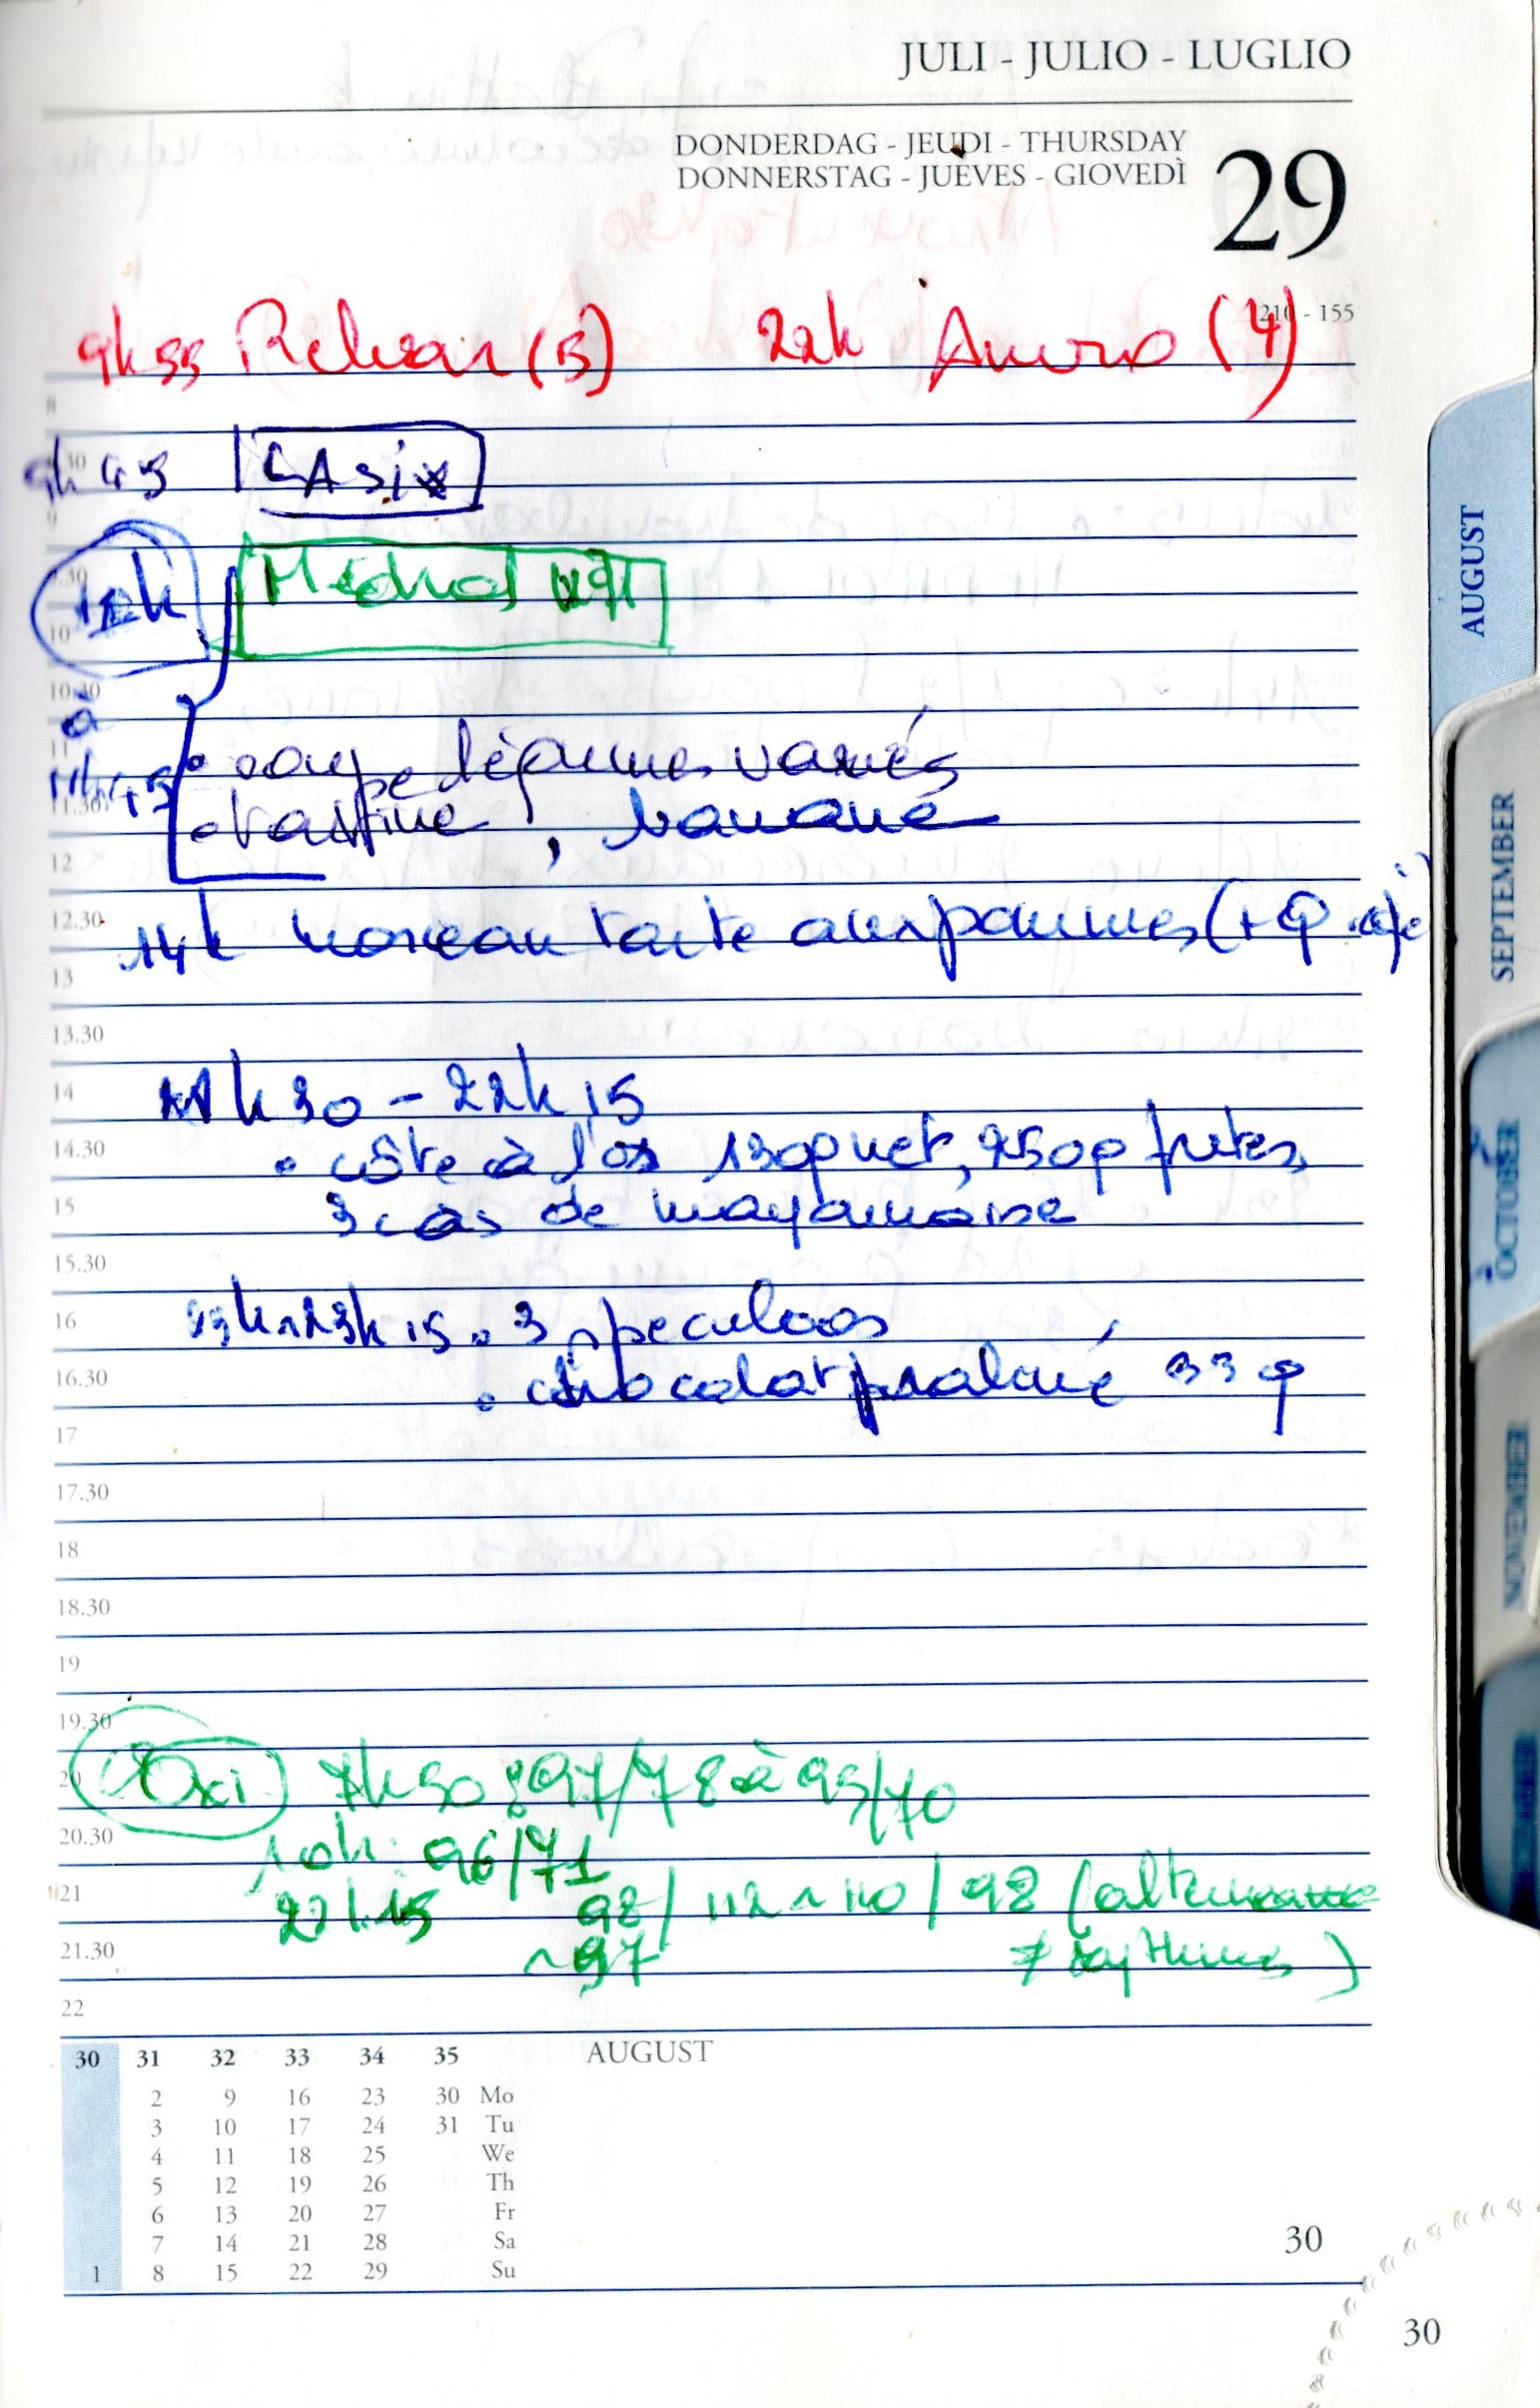 JULI - JULIO - LUGLIO
DONDERDAG - JEUDI - THURSDAY
DONNERSTAG - JUEVES - GIOVEDÌ
29
210 - 155
9h55 Relvar (5) 22h (4)
8
9h45 LASix
9
Médrol
10
10.30
à
11
11h45 • soupe légumes variés
11.30
• tartine, banane
12
12.30
14h morceau tarte aux pommes (+
13
13.30
14
21h30 - 22h15
14.30
• côte à l'os 130g net, 250g frites,
15
3 càs de mayonnaise
15.30
16
23h~23h15 • 3 speculoos
16.30
• chocolat praliné 33g
17
17.30
18
18.30
19
19.30
20
Oxi 7h50 : 97/78 à 95/70
20.30
10h: 96/71
21
22h15 98/112~110/98 (alternance
21.30
~97 ≠ rythmes)
22
30 31 32 33 34 35 AUGUST
2 9 16 23 30 Mo
3 10 17 24 31 Tu
4 11 18 25 We
5 12 19 26 Th
6 13 20 27 Fr
7 14 21 28 Sa
1 8 15 22 29 Su
30
30
AUGUST
SEPTEMBER
OCTOBER
NOVEMBER